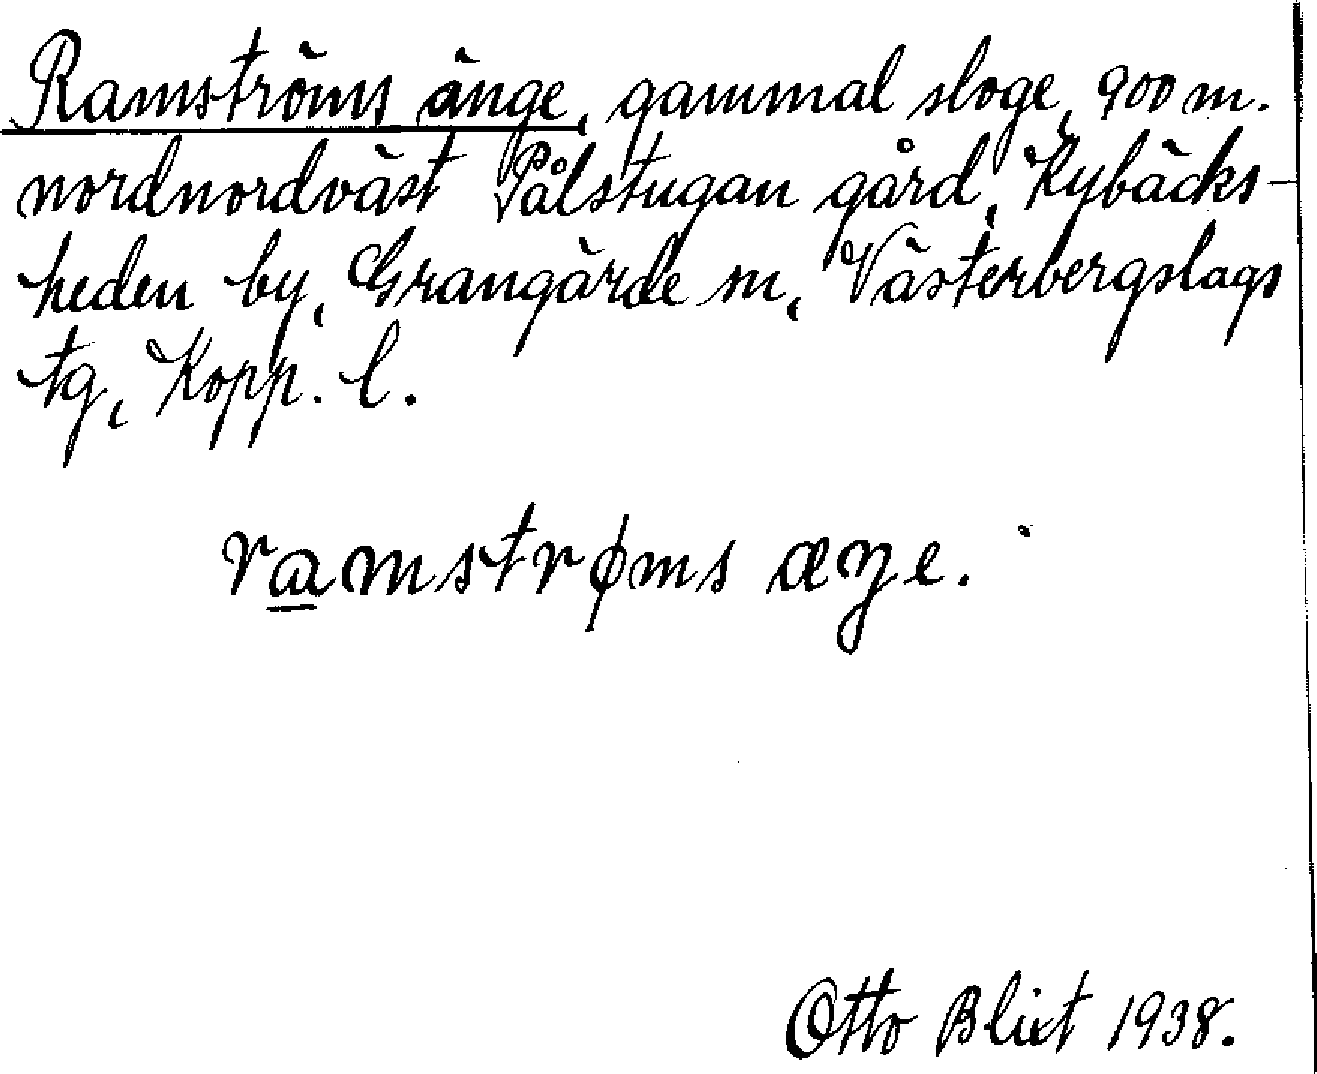 Ramströms änge, gammal sloge, 900 m.
nordnordväst Pålstugan gård, Kybäcks-
heden by, Grangärde sn, Västerbergslags
tg, Kopp. l.
ramstrøms æŋe.
Otto Blixt 1938.